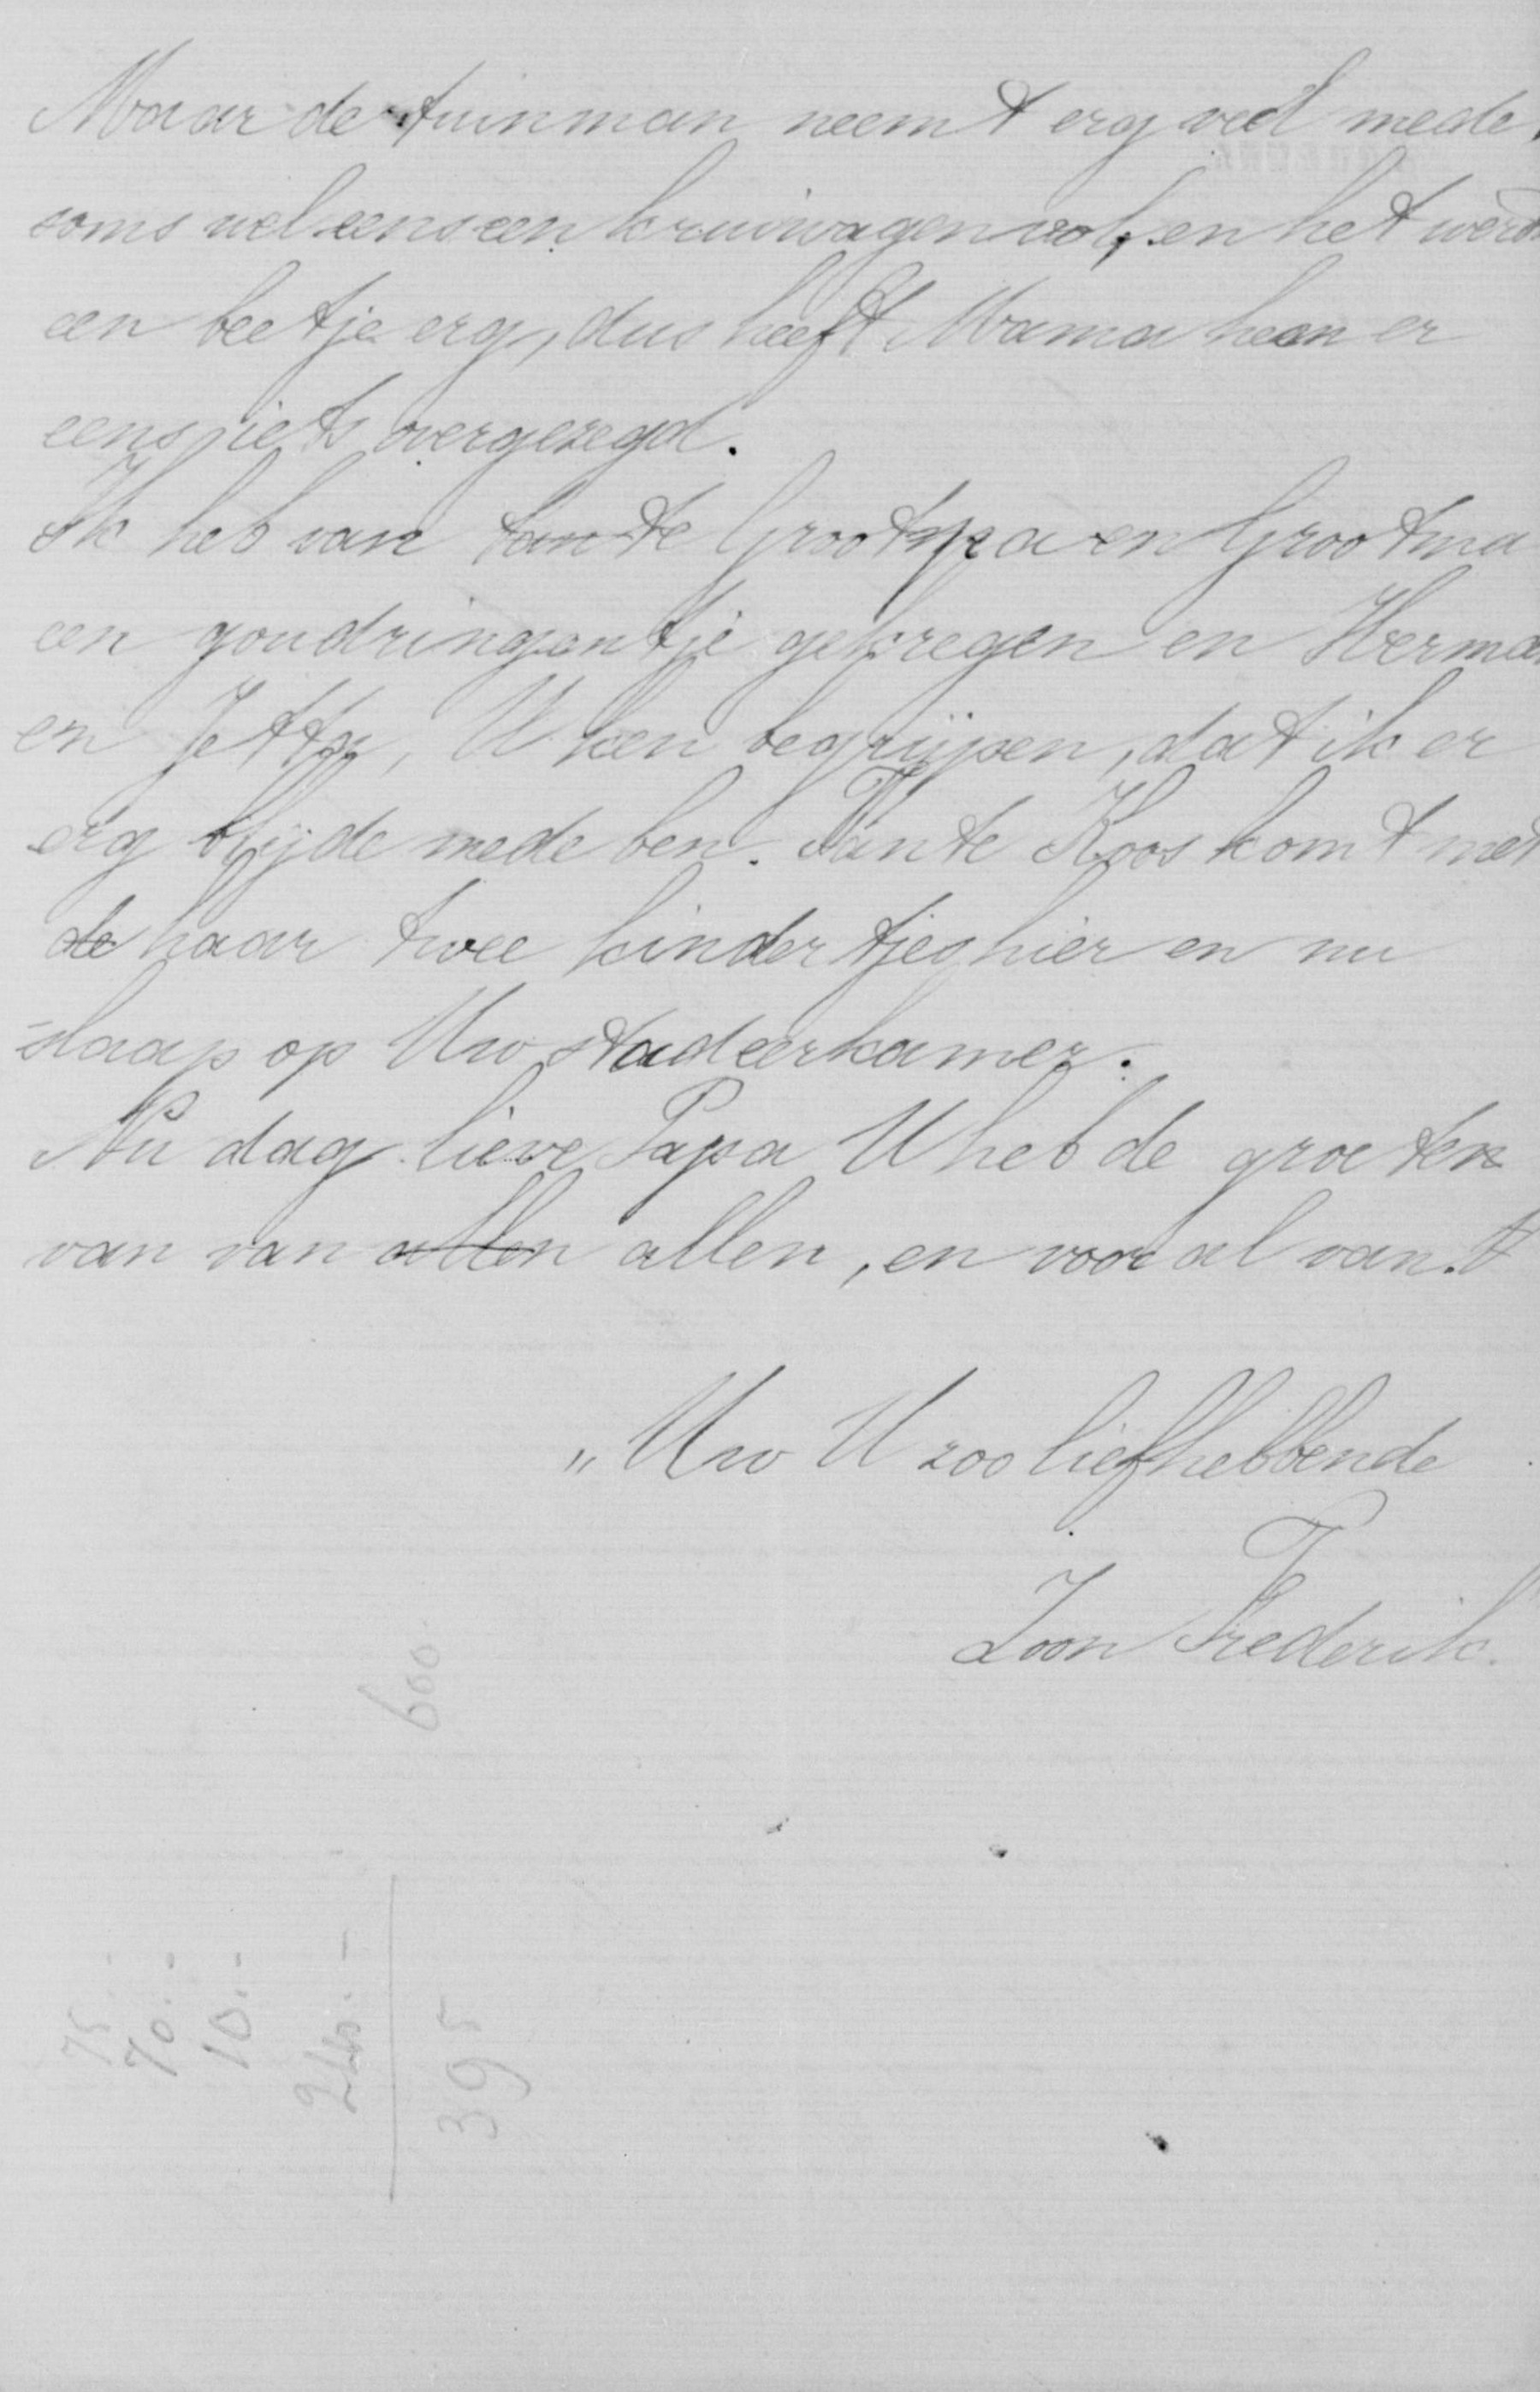 Maar de tuinman neemt erg veel mede,
soms wel eens een kruiwagen vol, en het werd
een beetje erg, dus heeft Mama hem er
eens iets over gezegd.
Ik heb van tante Grootpa en Grootma
een goudringentje gekregen en Herma
en Jetty, U ken begrijpen, dat ik er
erg blijde mede ben. Tante Koos komt met
de haar twee kindertjes hier en nu
slaap op Uw studeerkamer.
Nu dag lieve Papa U heb de groeten
van van allen allen, en vooral van.
„Uw U zoo liefhebbende
Zoon Frederik.
600
75.
70.-
10.-
395